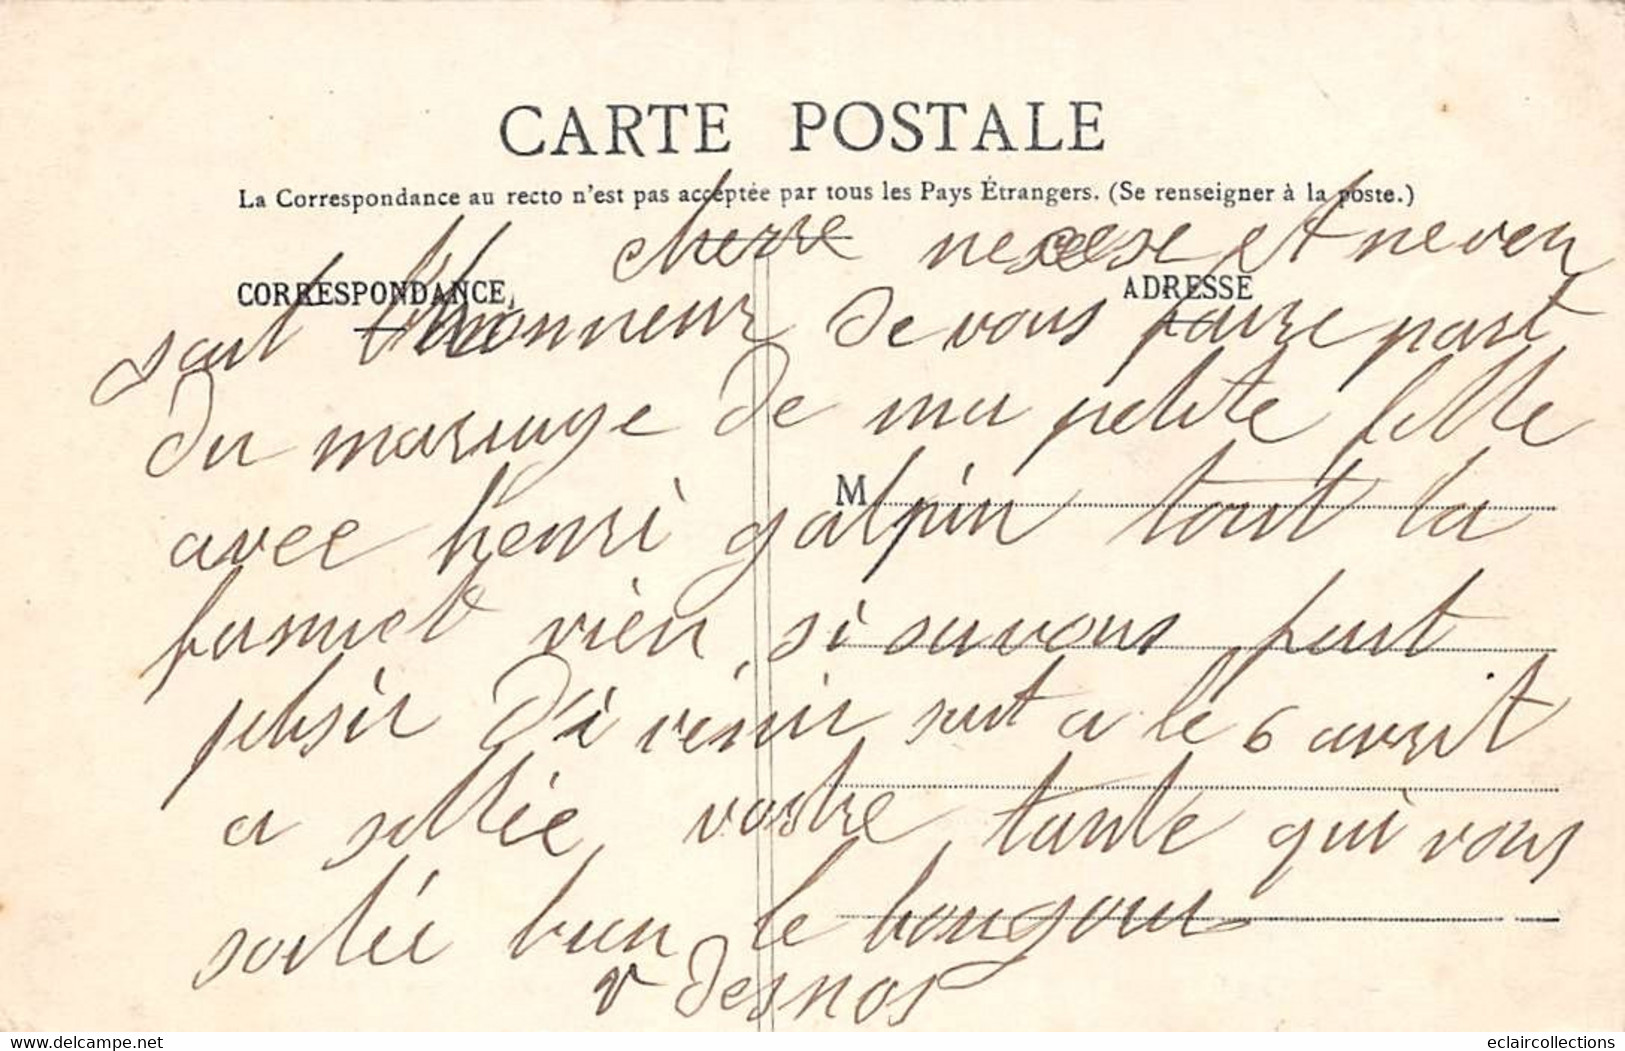 CARTE POSTALE
La Correspondance au recto n'est pas acceptée par tous les Pays Étrangers. (Se renseigner à la poste.)
CORRESPONDANCE
ADRESSE
cherre et neveu
l'honneur de vous faire part
du mariage de ma petite fille
M
avec henri galpin tout la
vien si sa vous fait
plesir d'i venir a le 6 avrit
a vostre tante qui vous
bien le bongour
v desnos
eclaircollections